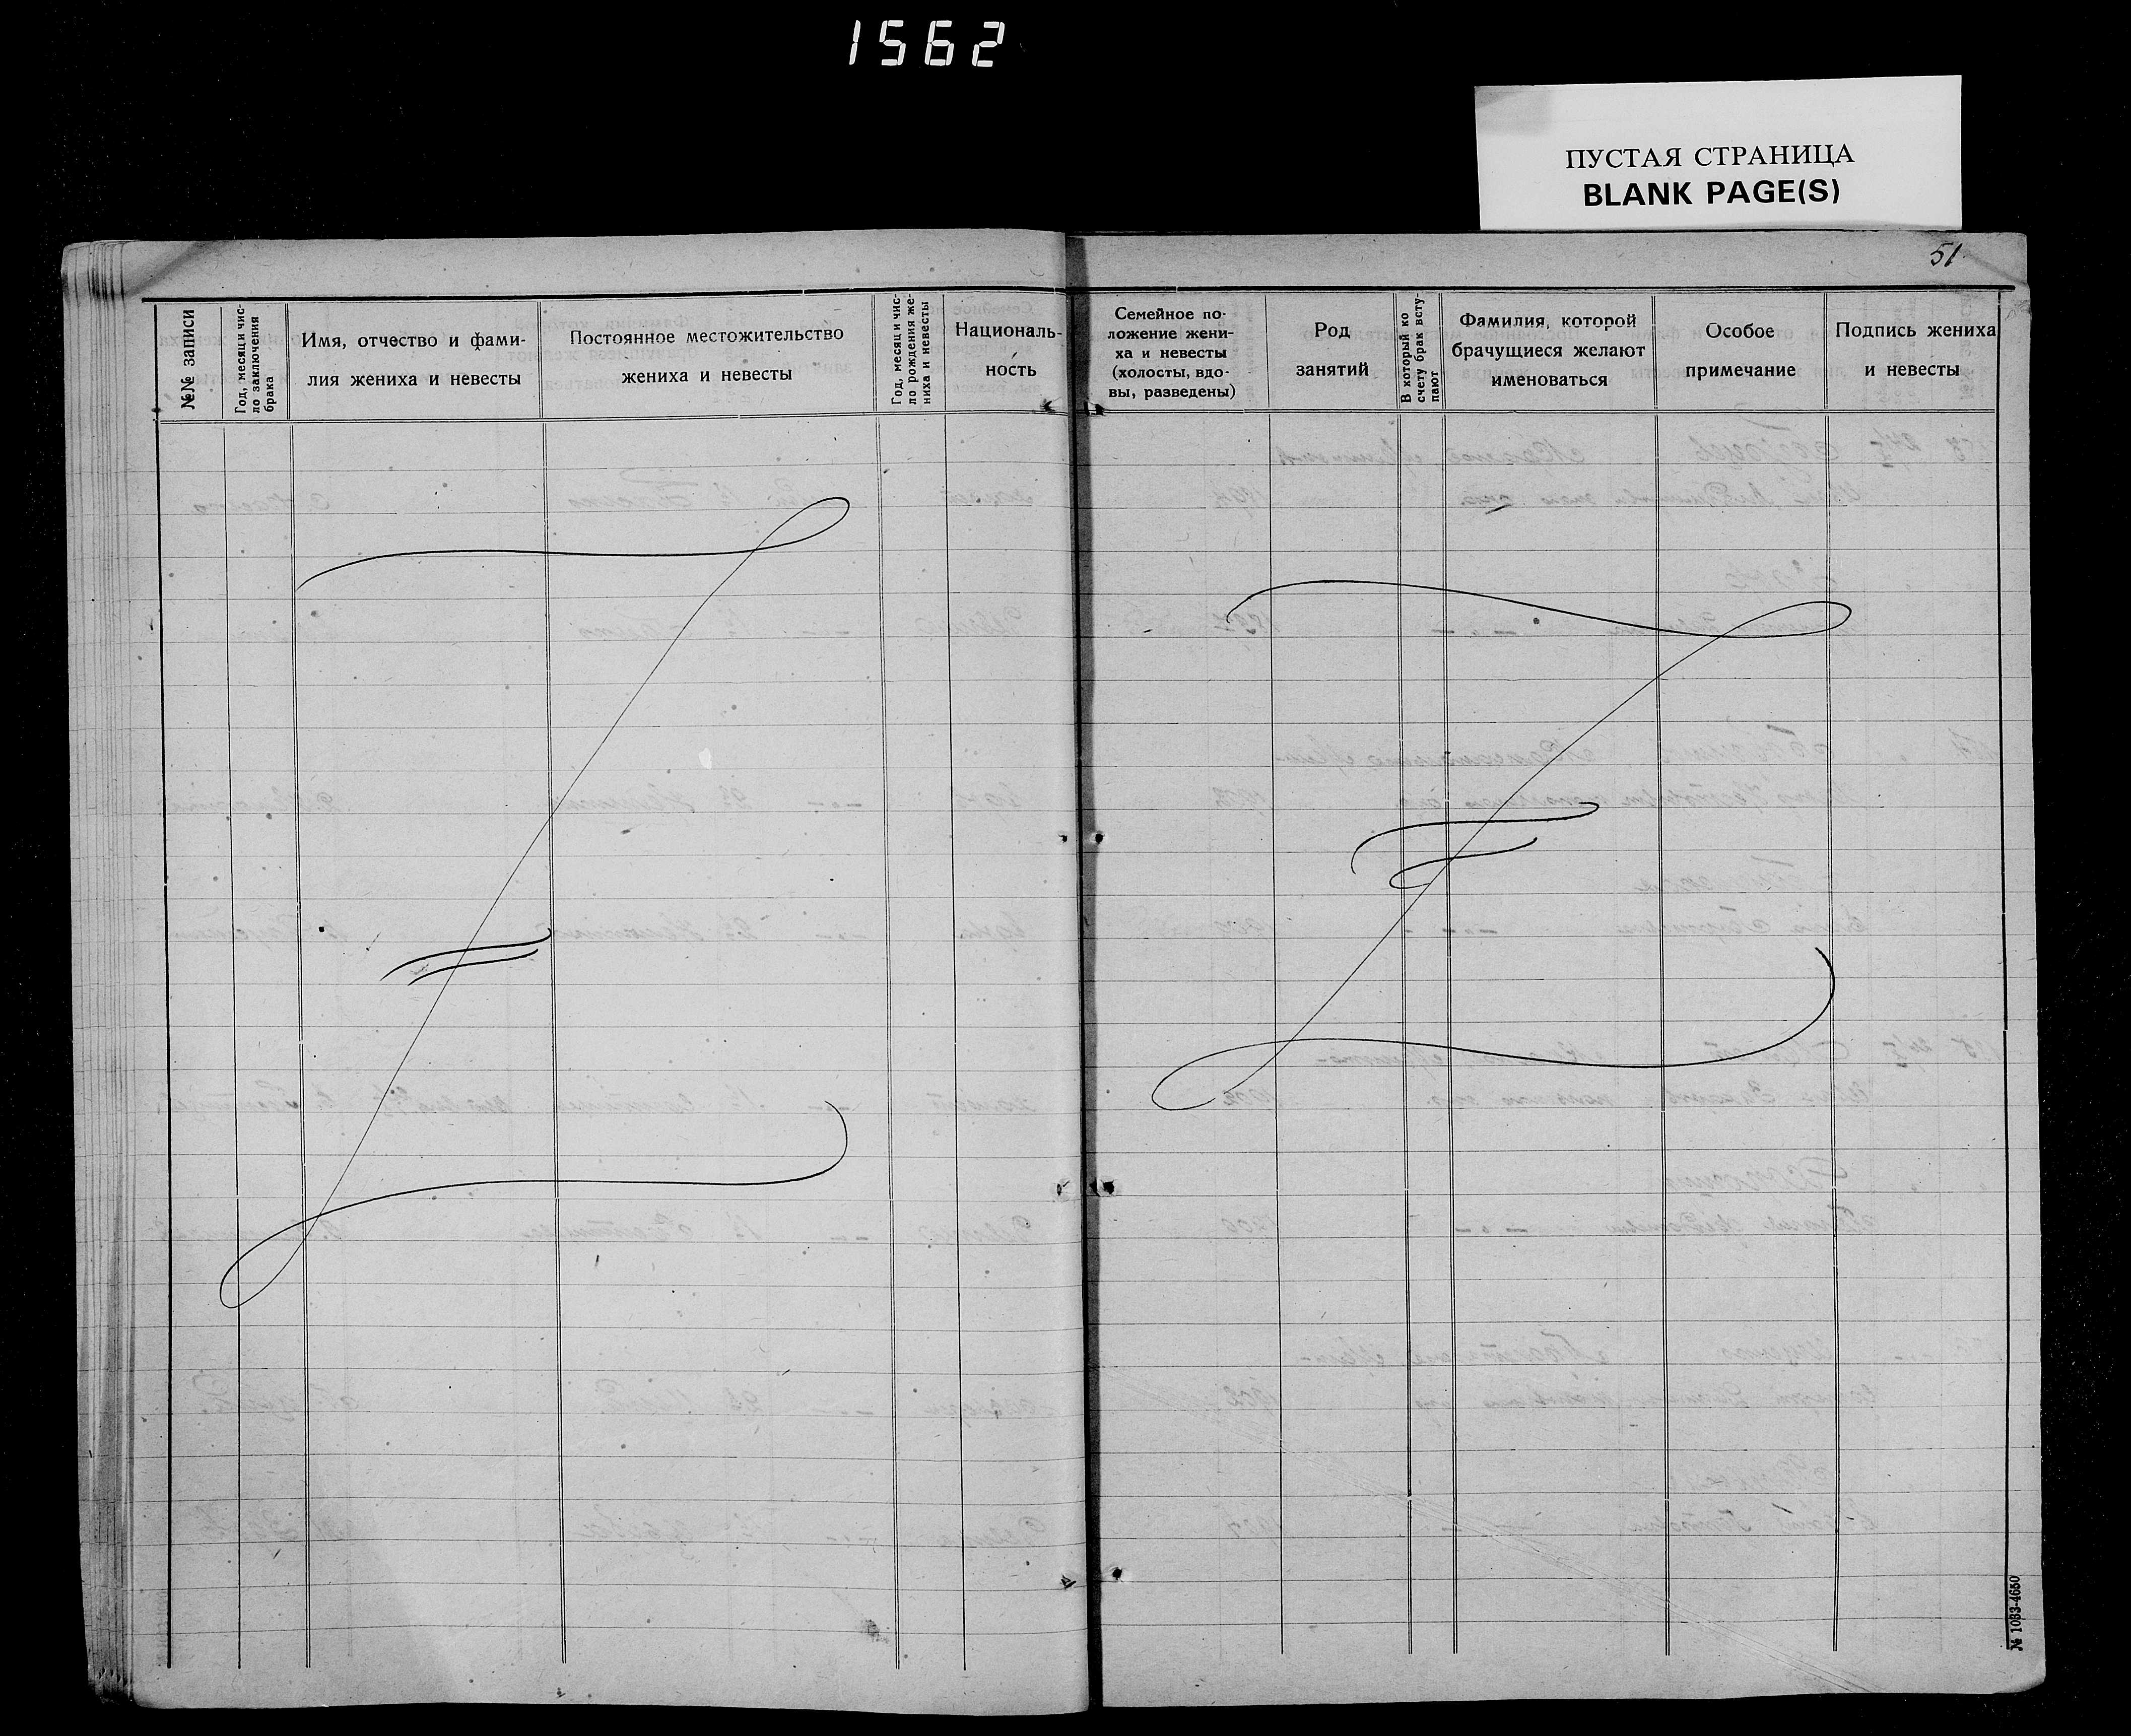 1562
ПУСТАЯ СТРАНИЦА
BLANK PAGE(S)
51
№№ записи
Год, месяц и чис-
ло заключения
брака
Имя, отчество и фами-
лия жениха и невесты
Постоянное местожительство
жениха и невесты
Год, месяц и чис-
ло рождения же-
ниха и невесты
Националь-
ность
Семейное по-
ложение жени-
ха и невесты
(холосты, вдо-
вы, разведены)
Род
занятий
В который ко
счету брак всту-
пают
Фамилия, которой
брачущиеся желают
именоваться
Особое
примечание
Подпись жениха
и невесты
№ 1033-4650